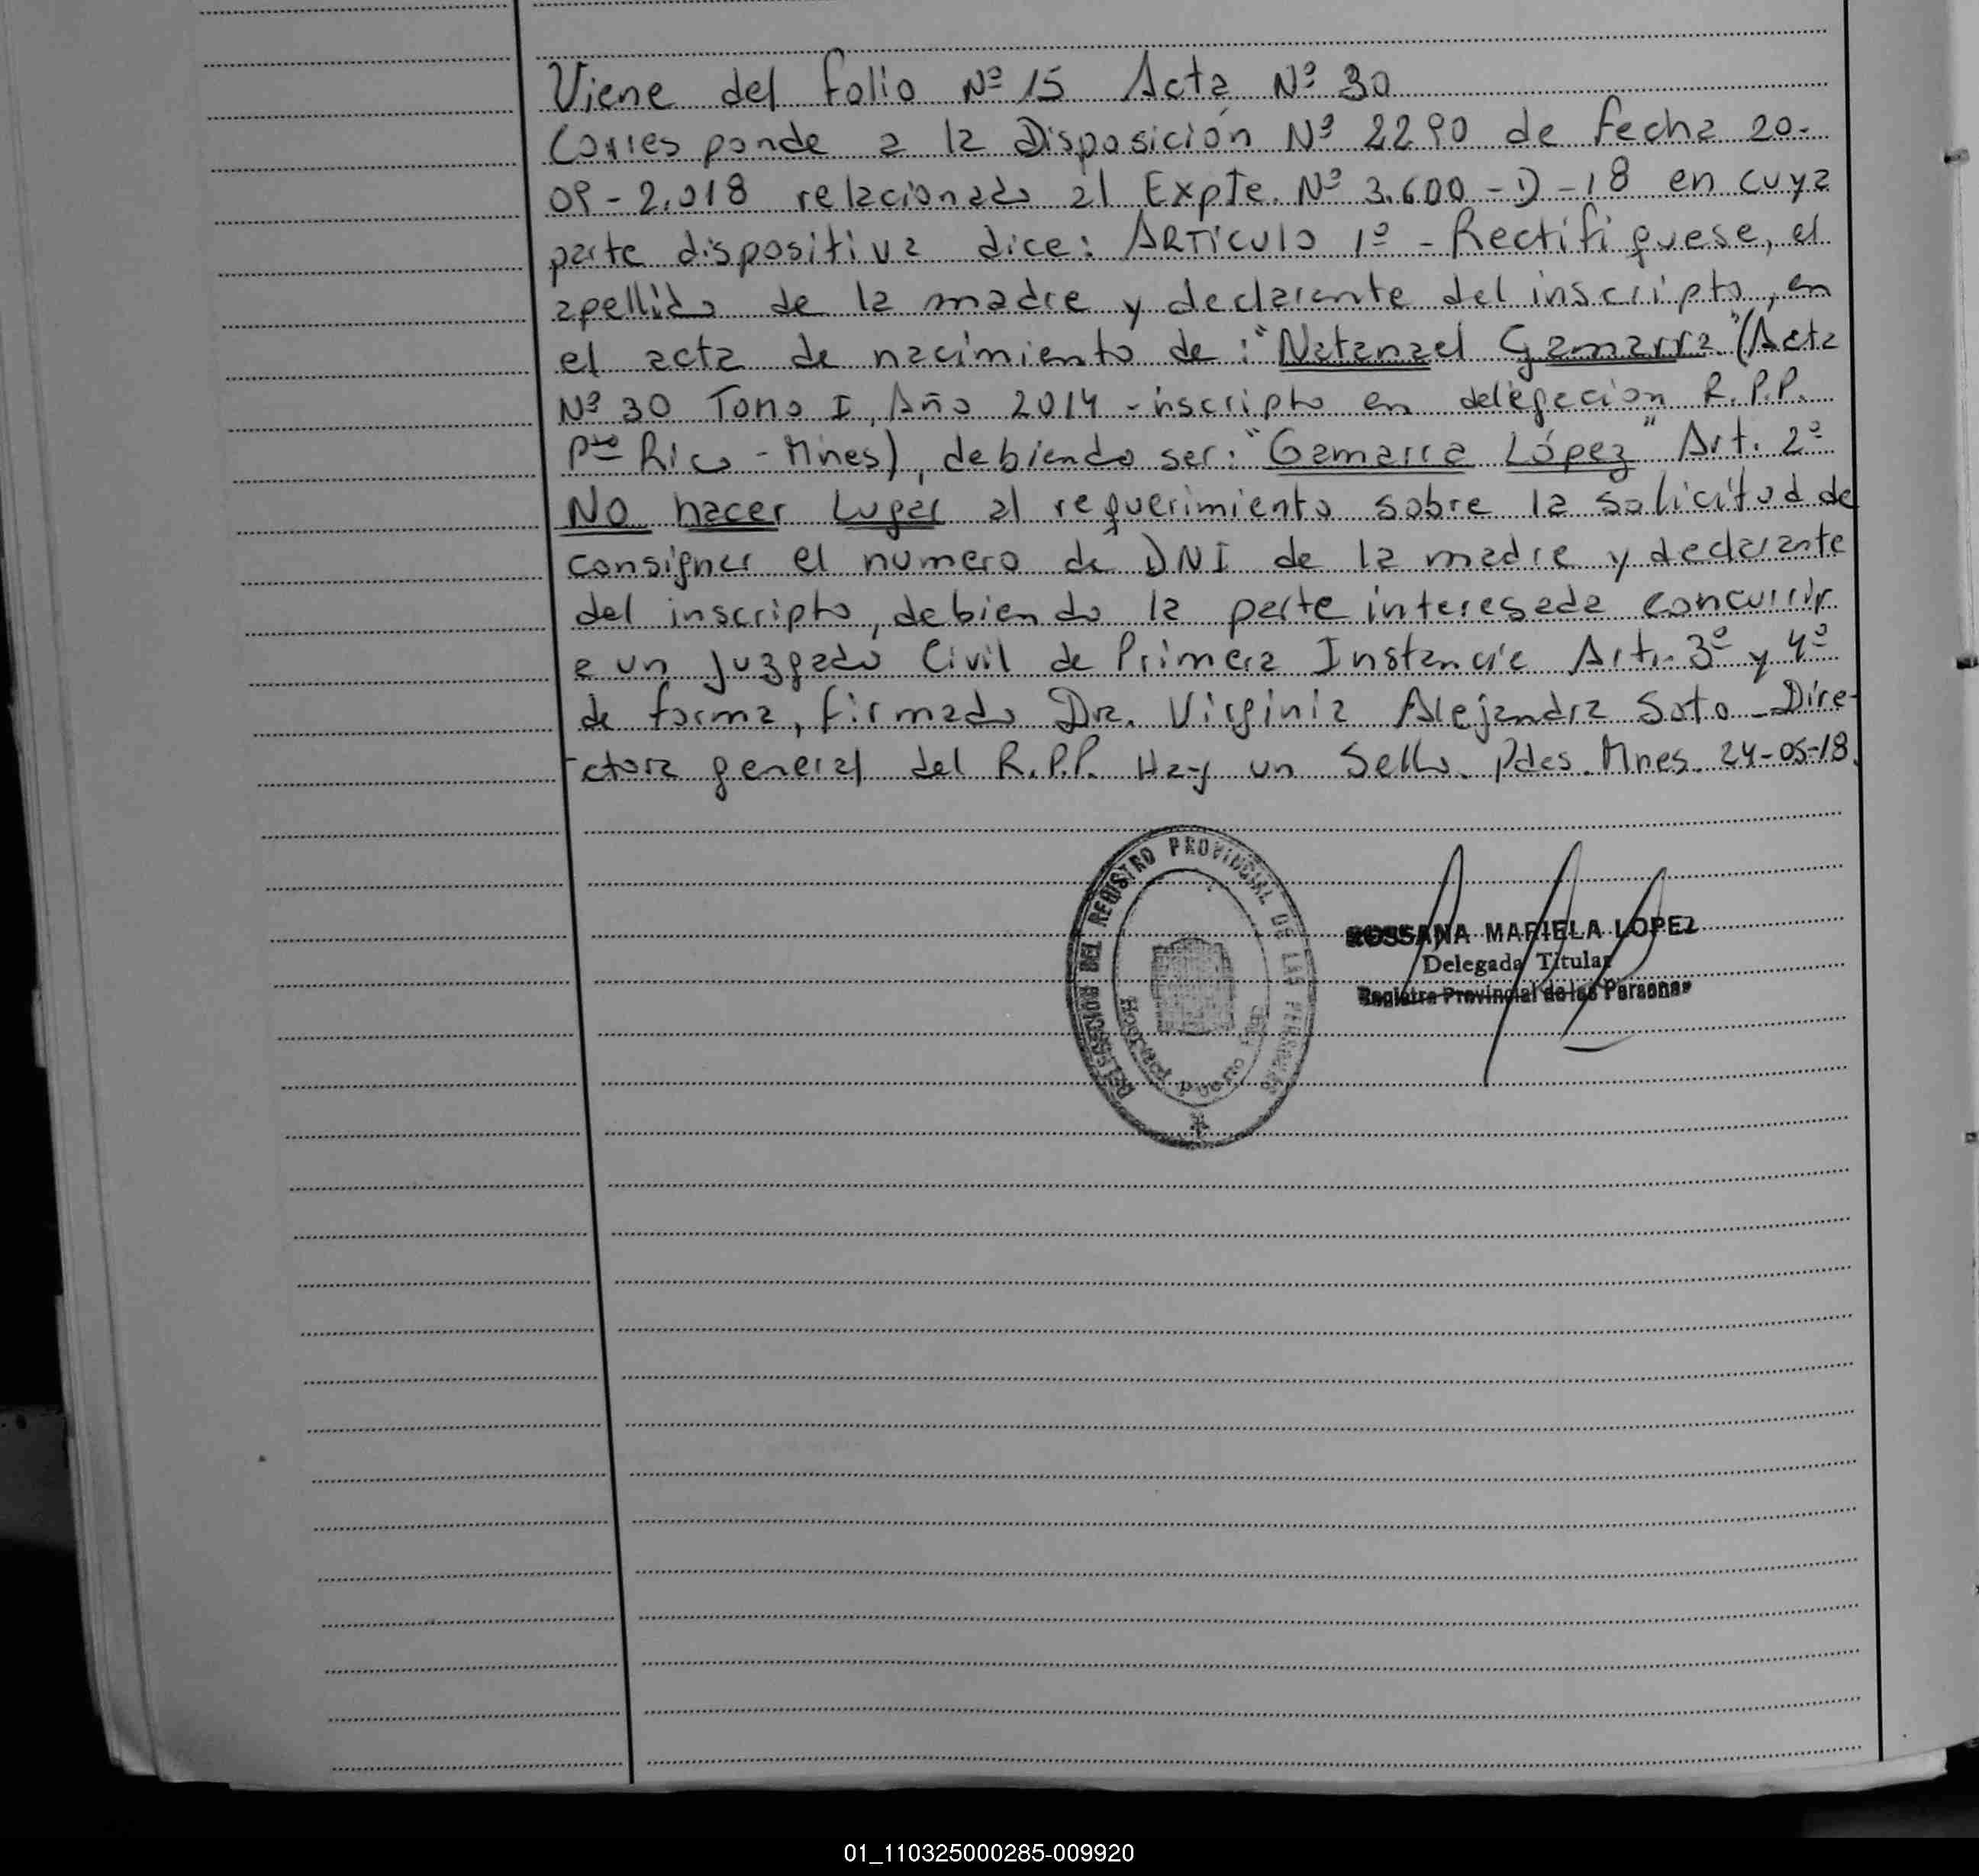 Viene del folio Nº 15 Acta Nº 30
Corresponde a la Disposición Nº 2290 de fecha 20-
09-2.018 relacionado al Expte. Nº 3.600-D-18 en cuya
parte dispositiva dice: ARTICULO 1º - Rectifiquese, el
apellido de la madre y declarante del inscripto, en
el acta de nacimiento de: "Natanael Gamarra" (Acta
Nº 30 Tomo I, Año 2014 - inscripto en delegacion R.P.P.
Pto Rico - Mnes), debiendo ser: "Gamarra López" Art. 2º
NO hacer Lugar al requerimiento sobre la solicitud de
consignar el numero de DNI de la madre y declarante
del inscripto, debiendo la parte interesada concurrir
a un Juzgado Civil de Primera Instancia Art. 3º y 4º
de forma, firmado Dra. Virginia Alejandra Soto - Dire-
ctora general del R.P.P. Hay un Sello. Pdas. Mnes. 24-05-18.
DELEGACION DEL REGISTRO PROVINCIAL DE LAS PERSONAS
Hospital Puerto
ROSSANA MARIELA LOPEZ
Delegada Titular
Registro Provincial de las Personas
01_110325000285-009920